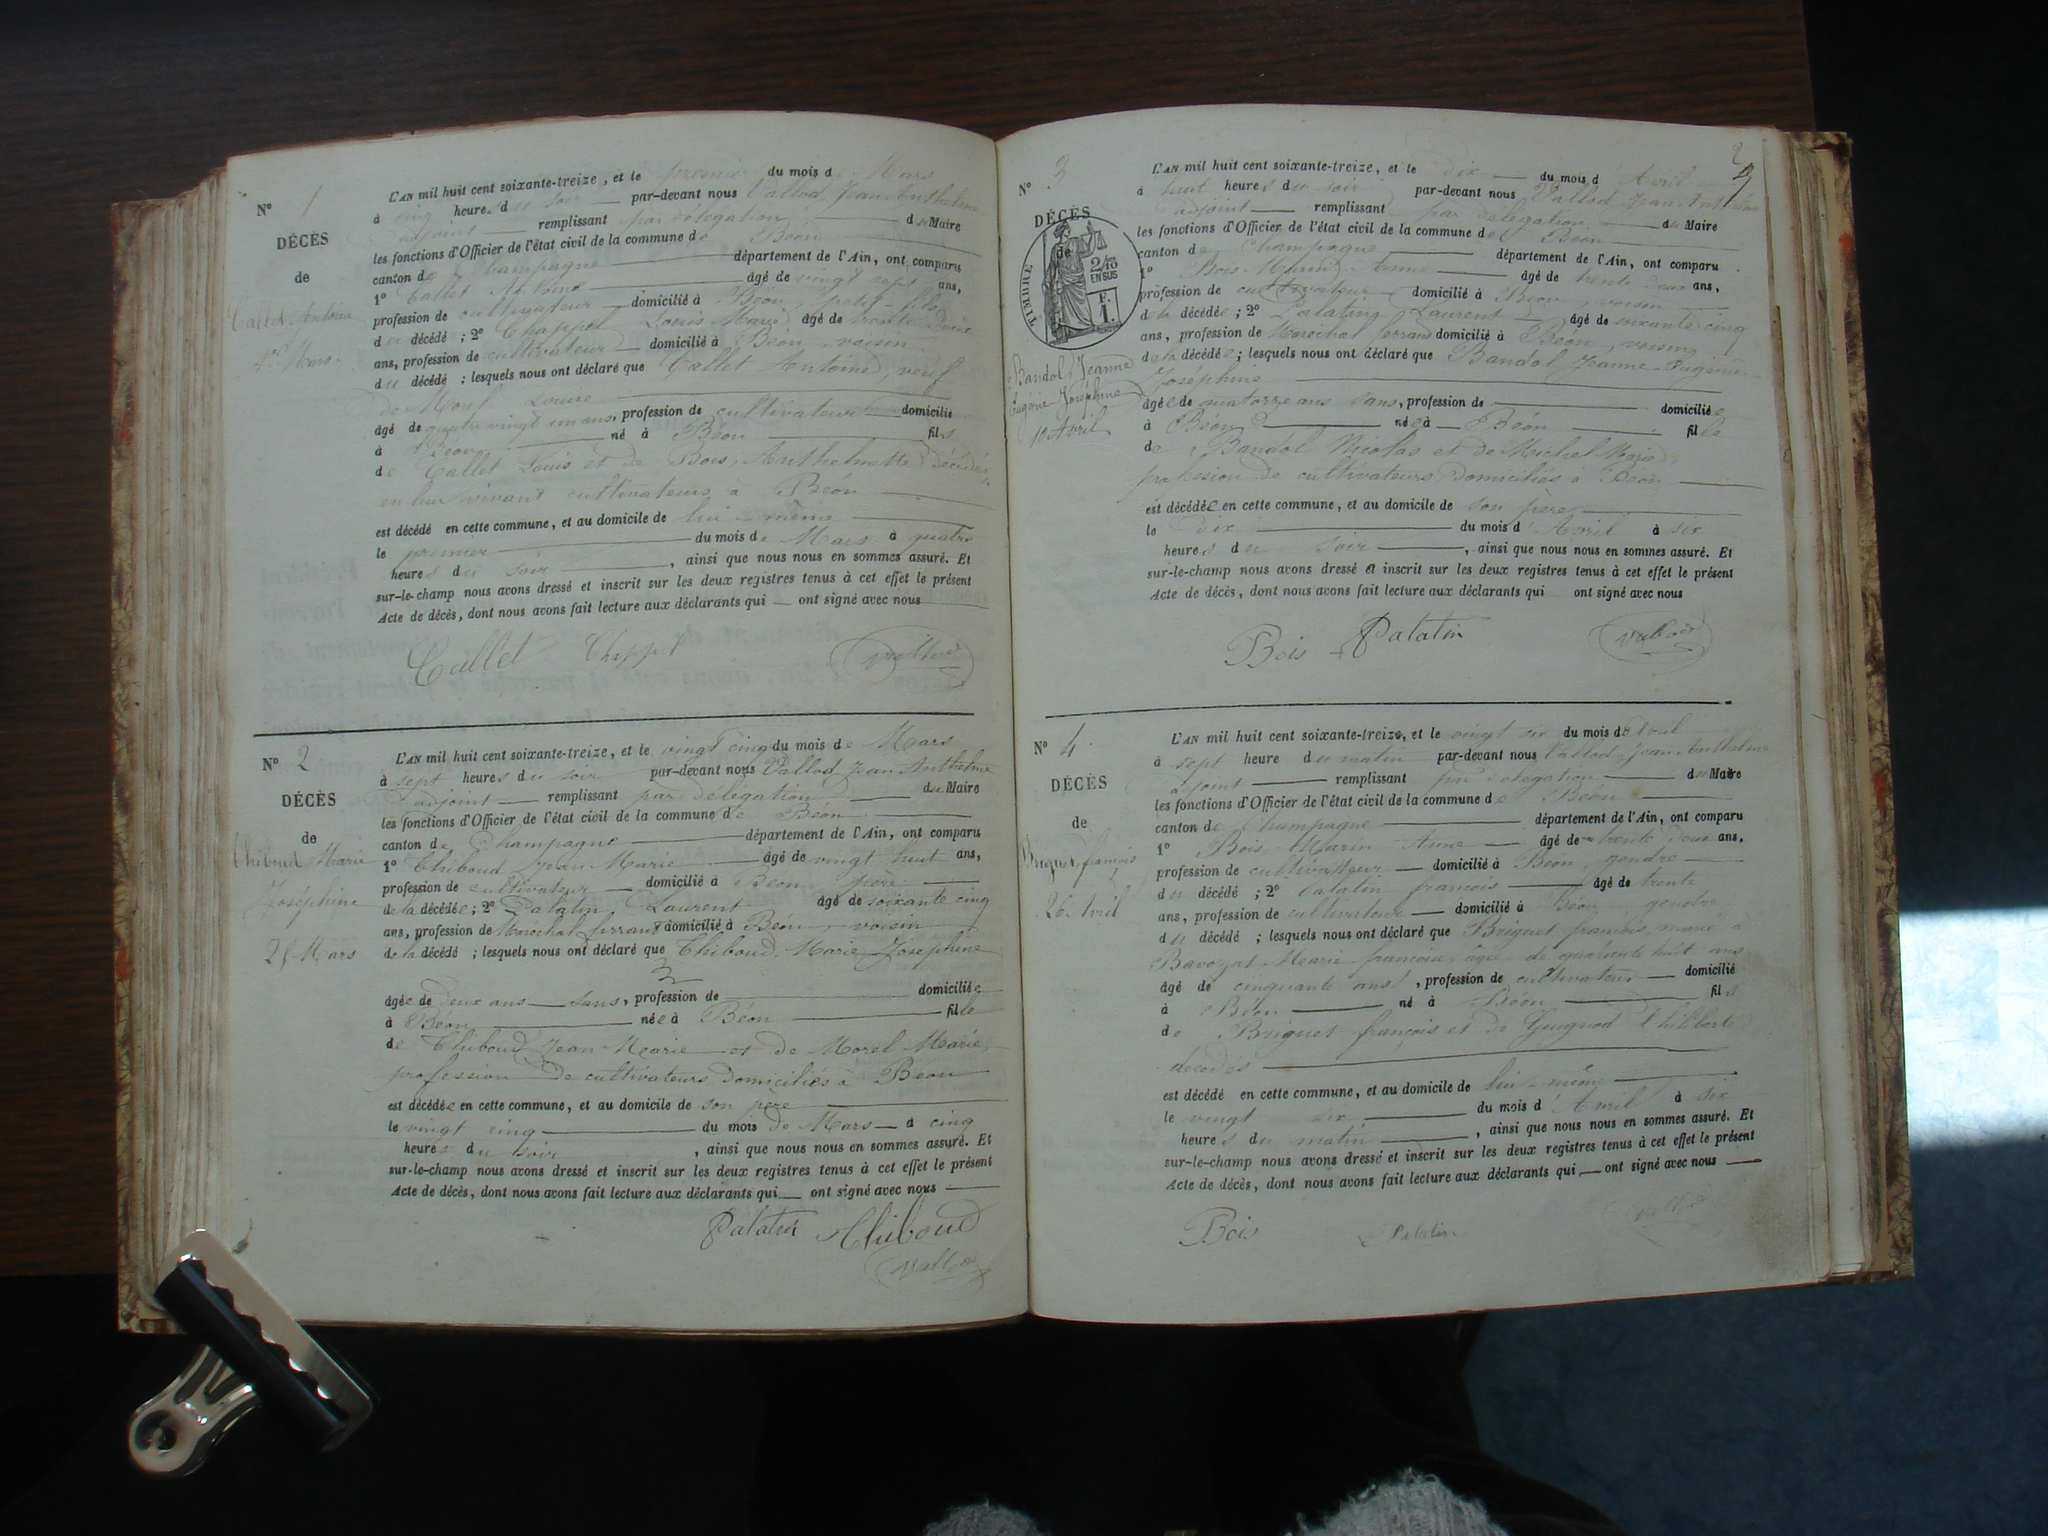 N° 1
DÉCÈS
de
Callet Antoine
1er Mars
L'AN mil huit cent soixante-treize, et le premier du mois de Mars
à cinq heures du soir par-devant nous Vallod Jean Anthelme
adjoint remplissant par délégation du Maire
les fonctions d'Officier de l'état civil de la commune de Béon
canton de Champagne département de l'Ain, ont comparu
1° Callet Antoine âgé de vingt sept ans,
profession de cultivateur domicilié à Béon, petit-fils
du décédé ; 2° Chappel Louis Marie âgé de trente
ans, profession de cultivateur domicilié à Béon, voisin
du décédé ; lesquels nous ont déclaré que Callet Antoine, veuf
de Morel Louise
âgé de quatre vingt un ans, profession de cultivateur domicilié
à Béon né à Béon fils
de Callet Louis et de Bois Anthelmette décédés
en leur vivant cultivateurs à Béon
est décédé en cette commune, et au domicile de lui-même
le premier du mois de Mars à quatre
heures du soir, ainsi que nous nous en sommes assuré. Et
sur-le-champ nous avons dressé et inscrit sur les deux registres tenus à cet effet le présent
Acte de décès, dont nous avons fait lecture aux déclarants qui ont signé avec nous
Callet Chappel Vallod
N° 2
DÉCÈS
de
Thiboud Marie
Joséphine
25 Mars
L'AN mil huit cent soixante-treize, et le vingt cinq du mois de Mars
à sept heures du soir par-devant nous Vallod Jean Anthelme
adjoint remplissant par délégation du Maire
les fonctions d'Officier de l'état civil de la commune de Béon
canton de Champagne département de l'Ain, ont comparu
1° Thiboud Jean Marie âgé de vingt huit ans,
profession de cultivateur domicilié à Béon, père
de la décédée ; 2° Palatin Laurent âgé de soixante cinq
ans, profession de Maréchal ferrant domicilié à Béon, voisin
de la décédé ; lesquels nous ont déclaré que Thiboud Marie Joséphine
âgée de deux ans sans, profession de domiciliée
à Béon née à Béon fille
de Thiboud Jean Marie et de Morel Marie,
profession de cultivateurs domiciliés à Béon
est décédée en cette commune, et au domicile de son père
le vingt cinq du mois de Mars à cinq
heures du soir, ainsi que nous nous en sommes assuré. Et
sur-le-champ nous avons dressé et inscrit sur les deux registres tenus à cet effet le présent
Acte de décès, dont nous avons fait lecture aux déclarants qui ont signé avec nous
Palatin Thiboud
Vallod
2
N° 3
DÉCÈS
de
TIMBRE
2/10
EN SUS
F.
1.
Bandol Jeanne
Eugénie Joséphine
10 Avril
L'AN mil huit cent soixante-treize, et le dix du mois d'Avril
à huit heures du soir par-devant nous Vallod Jean Anthelme
adjoint remplissant par délégation du Maire
les fonctions d'Officier de l'état civil de la commune de Béon
canton de Champagne département de l'Ain, ont comparu
1° Bois Marin Anne âgé de trente deux ans,
profession de cultivateur domicilié à Béon, voisin
de la décédée ; 2° Palatin Laurent âgé de soixante cinq
ans, profession de Maréchal ferrant domicilié à Béon, voisin
de la décédée ; lesquels nous ont déclaré que Bandol Jeanne Eugénie
Joséphine
âgée de quatorze ans sans, profession de domiciliée
à Béon née à Béon fille
de Bandol Nicolas et de Michel Marie,
profession de cultivateurs domiciliés à Béon
est décédée en cette commune, et au domicile de son père
le dix du mois d'Avril à six
heures du soir, ainsi que nous nous en sommes assuré. Et
sur-le-champ nous avons dressé et inscrit sur les deux registres tenus à cet effet le présent
Acte de décès, dont nous avons fait lecture aux déclarants qui ont signé avec nous
Bois Palatin Vallod
N° 4
DÉCÈS
de
Briguet françois
26 Avril
L'AN mil huit cent soixante-treize, et le vingt six du mois d'Avril
à sept heure du matin par-devant nous Vallod Jean Anthelme
adjoint remplissant par délégation du Maire
les fonctions d'Officier de l'état civil de la commune de Béon
canton de Champagne département de l'Ain, ont comparu
1° Bois Marin Anne âgé de trente deux ans,
profession de cultivateur domicilié à Béon, gendre
du décédé ; 2° Palatin françois âgé de trente
ans, profession de cultivateur domicilié à Béon gendre
du décédé ; lesquels nous ont déclaré que Briguet françois, marié à
Bavozat Marie françoise, âgée de quarante huit ans
âgé de cinquante ans, profession de cultivateur domicilié
à Béon né à Béon fils
de Briguet françois et de Guignod Philiberte
décédés
est décédé en cette commune, et au domicile de lui-même
le vingt six du mois d'Avril à six
heures du matin, ainsi que nous nous en sommes assuré. Et
sur-le-champ nous avons dressé et inscrit sur les deux registres tenus à cet effet le présent
Acte de décès, dont nous avons fait lecture aux déclarants qui ont signé avec nous
Bois Palatin Vallod